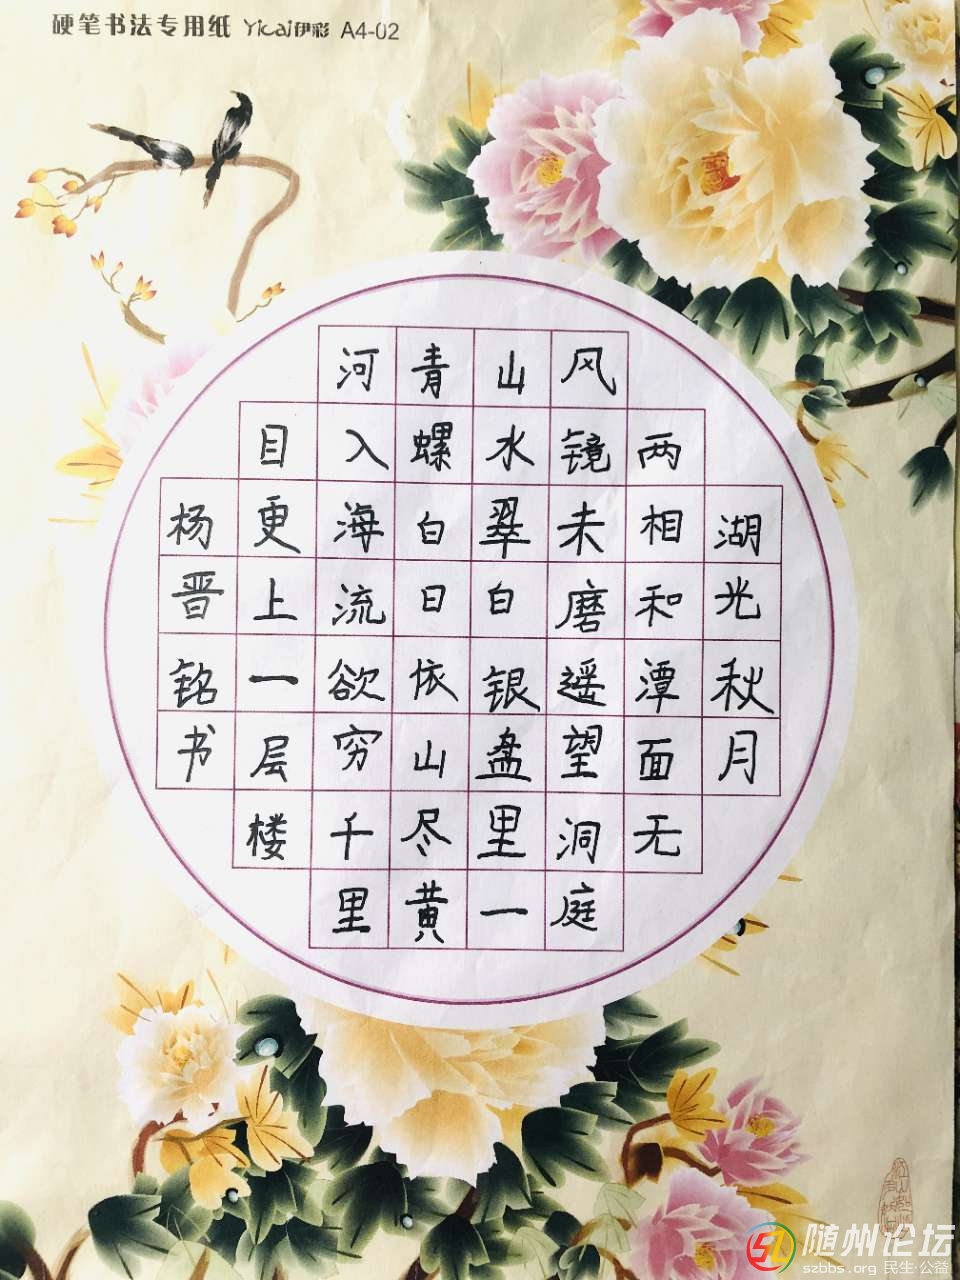 硬笔书法专用纸 Yicai伊彩 A4-02
湖光秋月
两相和潭面无
风镜未磨遥望洞庭
山水翠白银盘里一
青螺白日依山尽黄
河入海流欲穷千里
目更上一层楼
杨晋铭书
随州论坛
szbbs.org 民生·公益